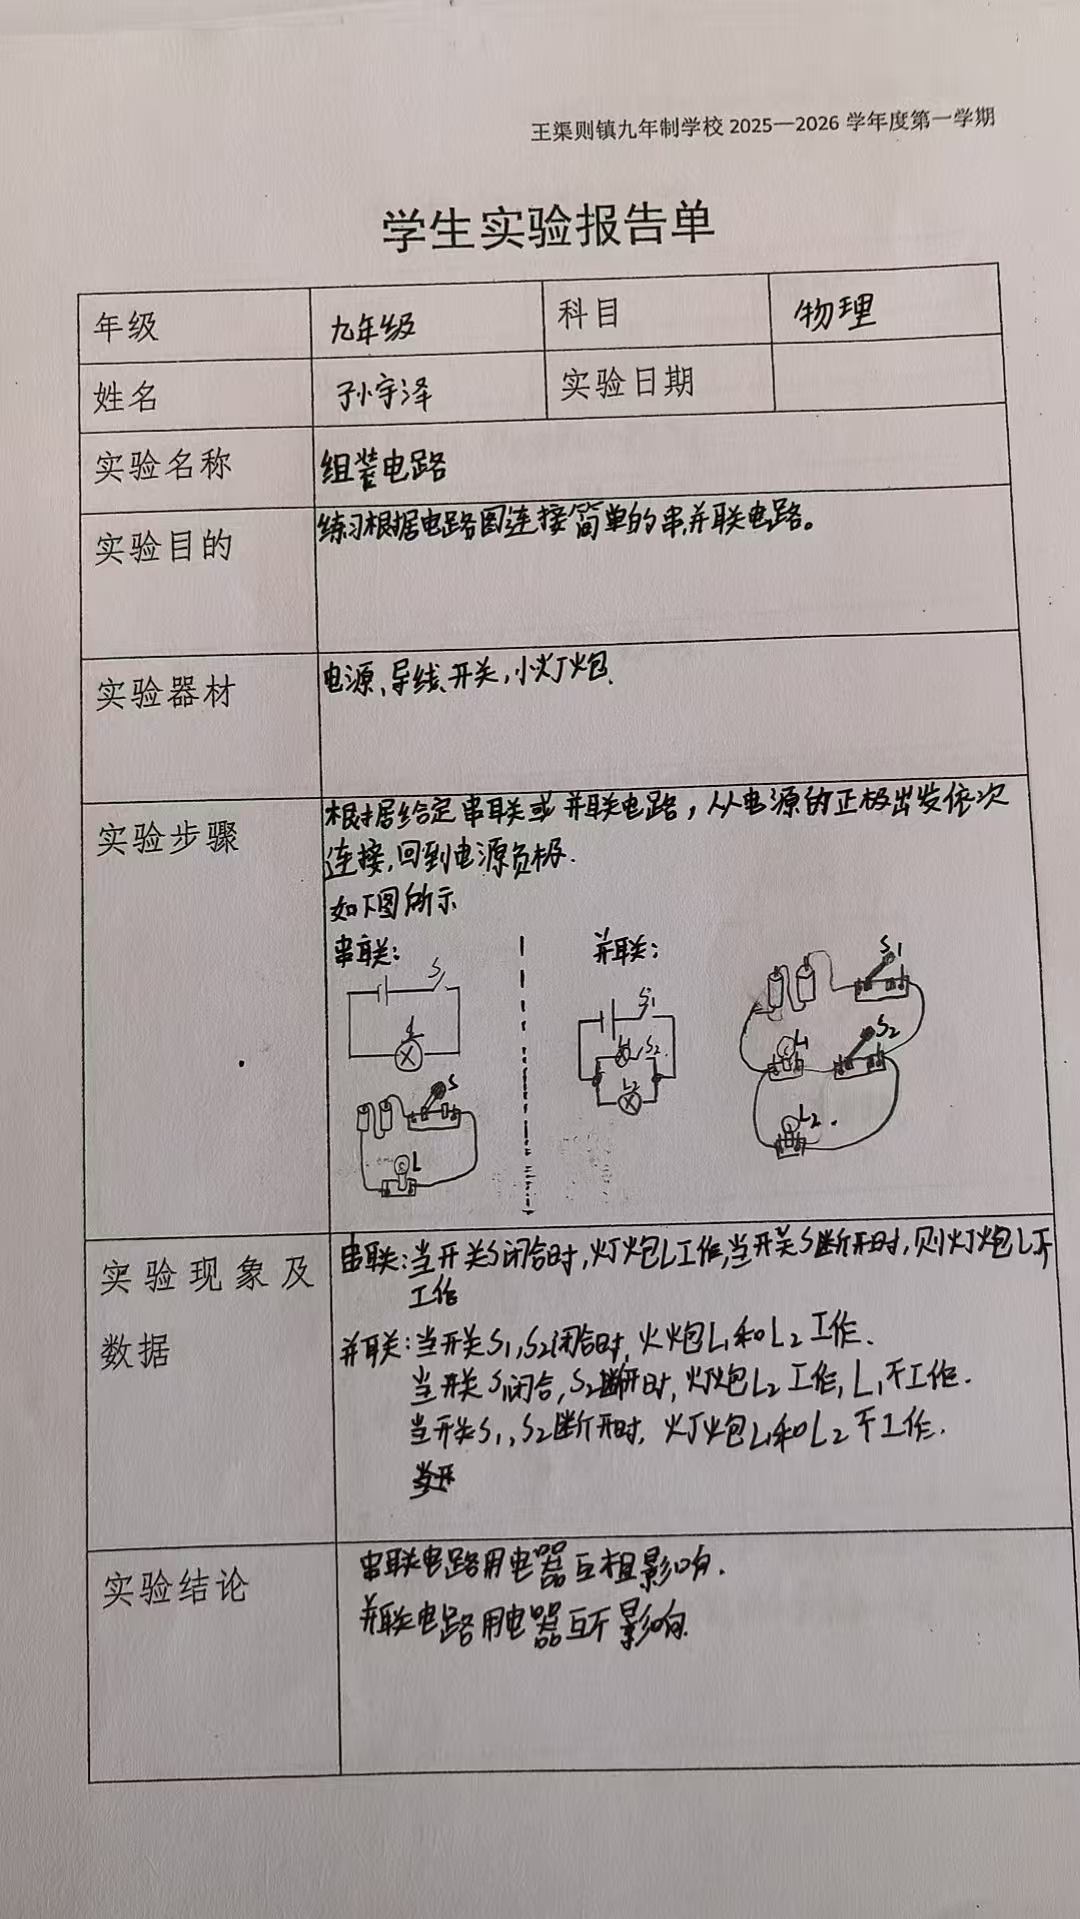 王渠则镇九年制学校 2025—2026 学年度第一学期
学生实验报告单
年级 九年级 科目 物理
姓名 孙宇泽 实验日期
实验名称 组装电路
实验目的 练习根据电路图连接简单的串,并联电路。
实验器材 电源、导线、开关,小灯炮.
实验步骤 根据给定串联或并联电路,从电源的正极出发依次
连接,回到电源负极.
如下图所示
串联: 并联:
S
L
S
L
S1
S2
S1
S2
L1
L2
实验现象及
数据
串联:当开关S闭合时,灯炮L工作,当开关S断开时,则灯炮L不
工作
并联:当开关S1,S2闭合时,火炮L1和L2工作.
当开关S1闭合,S2断开时,灯炮L2工作,L1不工作.
当开关S1,S2断开时,灯炮L1和L2不工作.
实验结论 串联电路用电器互相影响.
并联电路用电器互不影响.